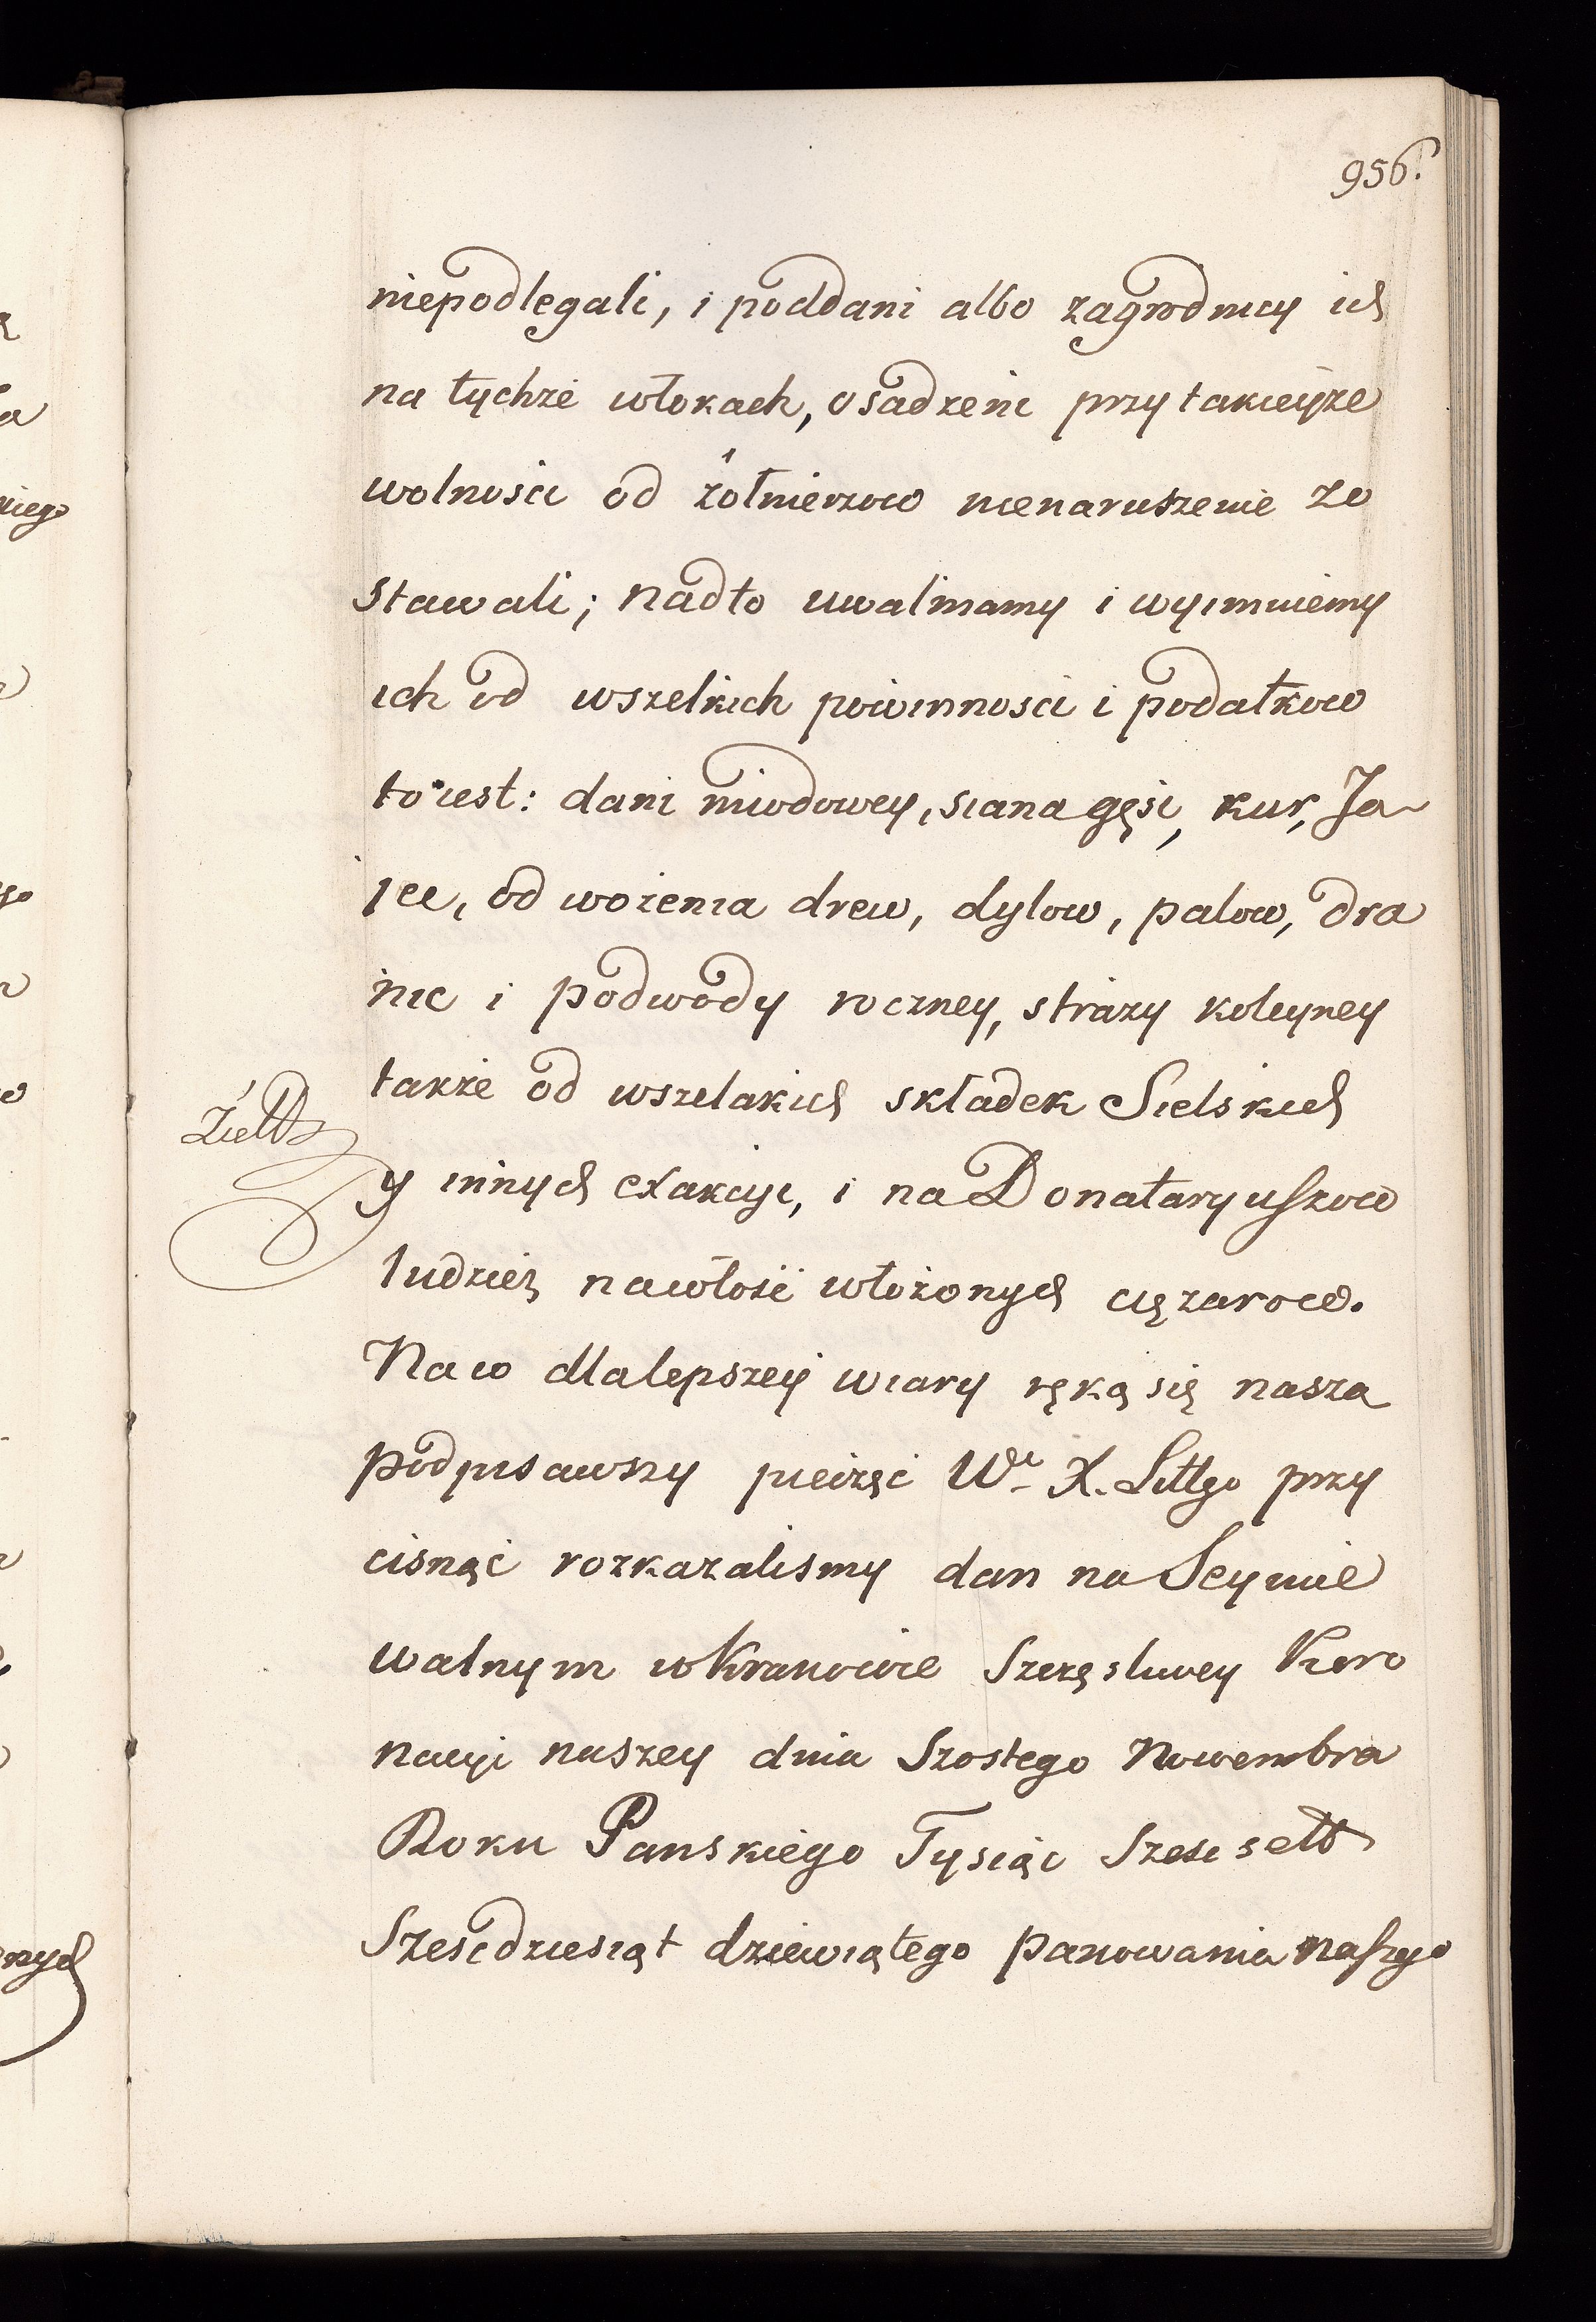 956.
niepodlegali, i poddani albo zagrodnicy ich
na tychże włokach, osadzeni przy takieyże
wolnosci od żołnierzow nienaruszenie zo
stawali; nadto uwalniamy i wyimuiemy
ich od wszelkich powinnosci i podatkow
to iest: dani miodowey, siana gęsi, kur, Ja-
jec, od wożenia drew, dylow, palow, dra
nic i podwody roczney, strazy koleyney
także od wszelakich składek Sielskich
y innych exakcyi, i na Donataryuszow
ludzież na włość włożonych ciężarow.
Na co dla lepszey wiary ręką się naszą
podpisawszy pieczęć Wo X. Littgo przy
cisnąć rozkazalismy dan na Seymie
walnym w Krakowie Szczęsliwey Koro
nacyi naszey dnia Szostego Nowembra
Roku Panskiego Tysiąc Szesc sett
Szescdziesiąt dziewiątego panowania naszego